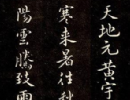 天地元黃宇
寒來暑往秋
陽雲騰致雨